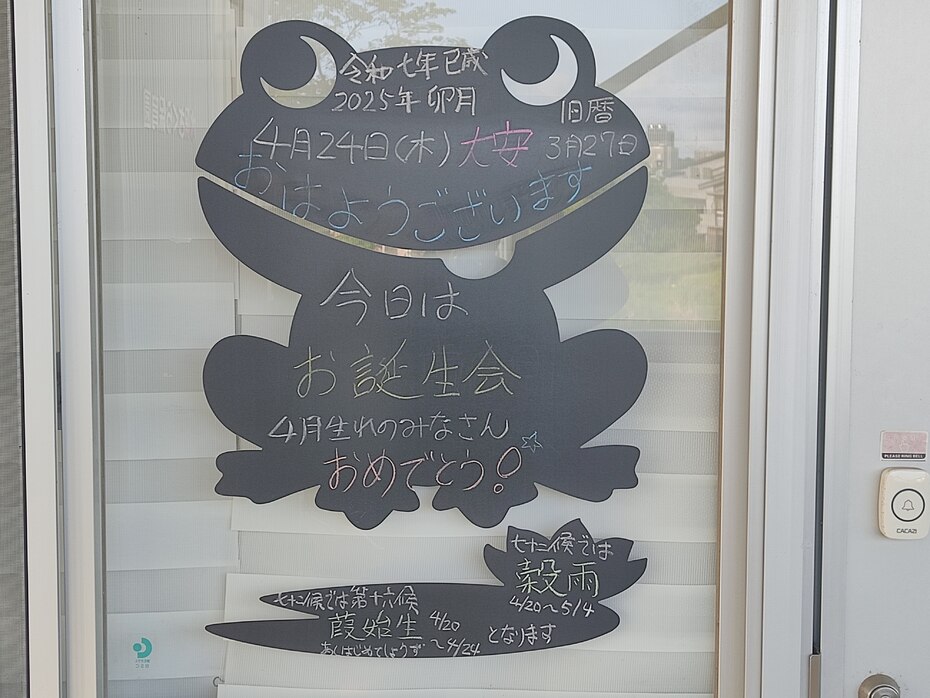 令和七年乙巳歳
2025年 卯月
旧暦
4月24日(木) 大安 3月27日
おはようございます
今日は
お誕生会
4月生れのみなさん
おめでとう!☆
七十二候では
穀雨
4/20～5/4
七十二候では第十六候
葭始生 4/20～4/24 となります
あしはじめてしょうず
PLEASE RING BELL
CACAZI